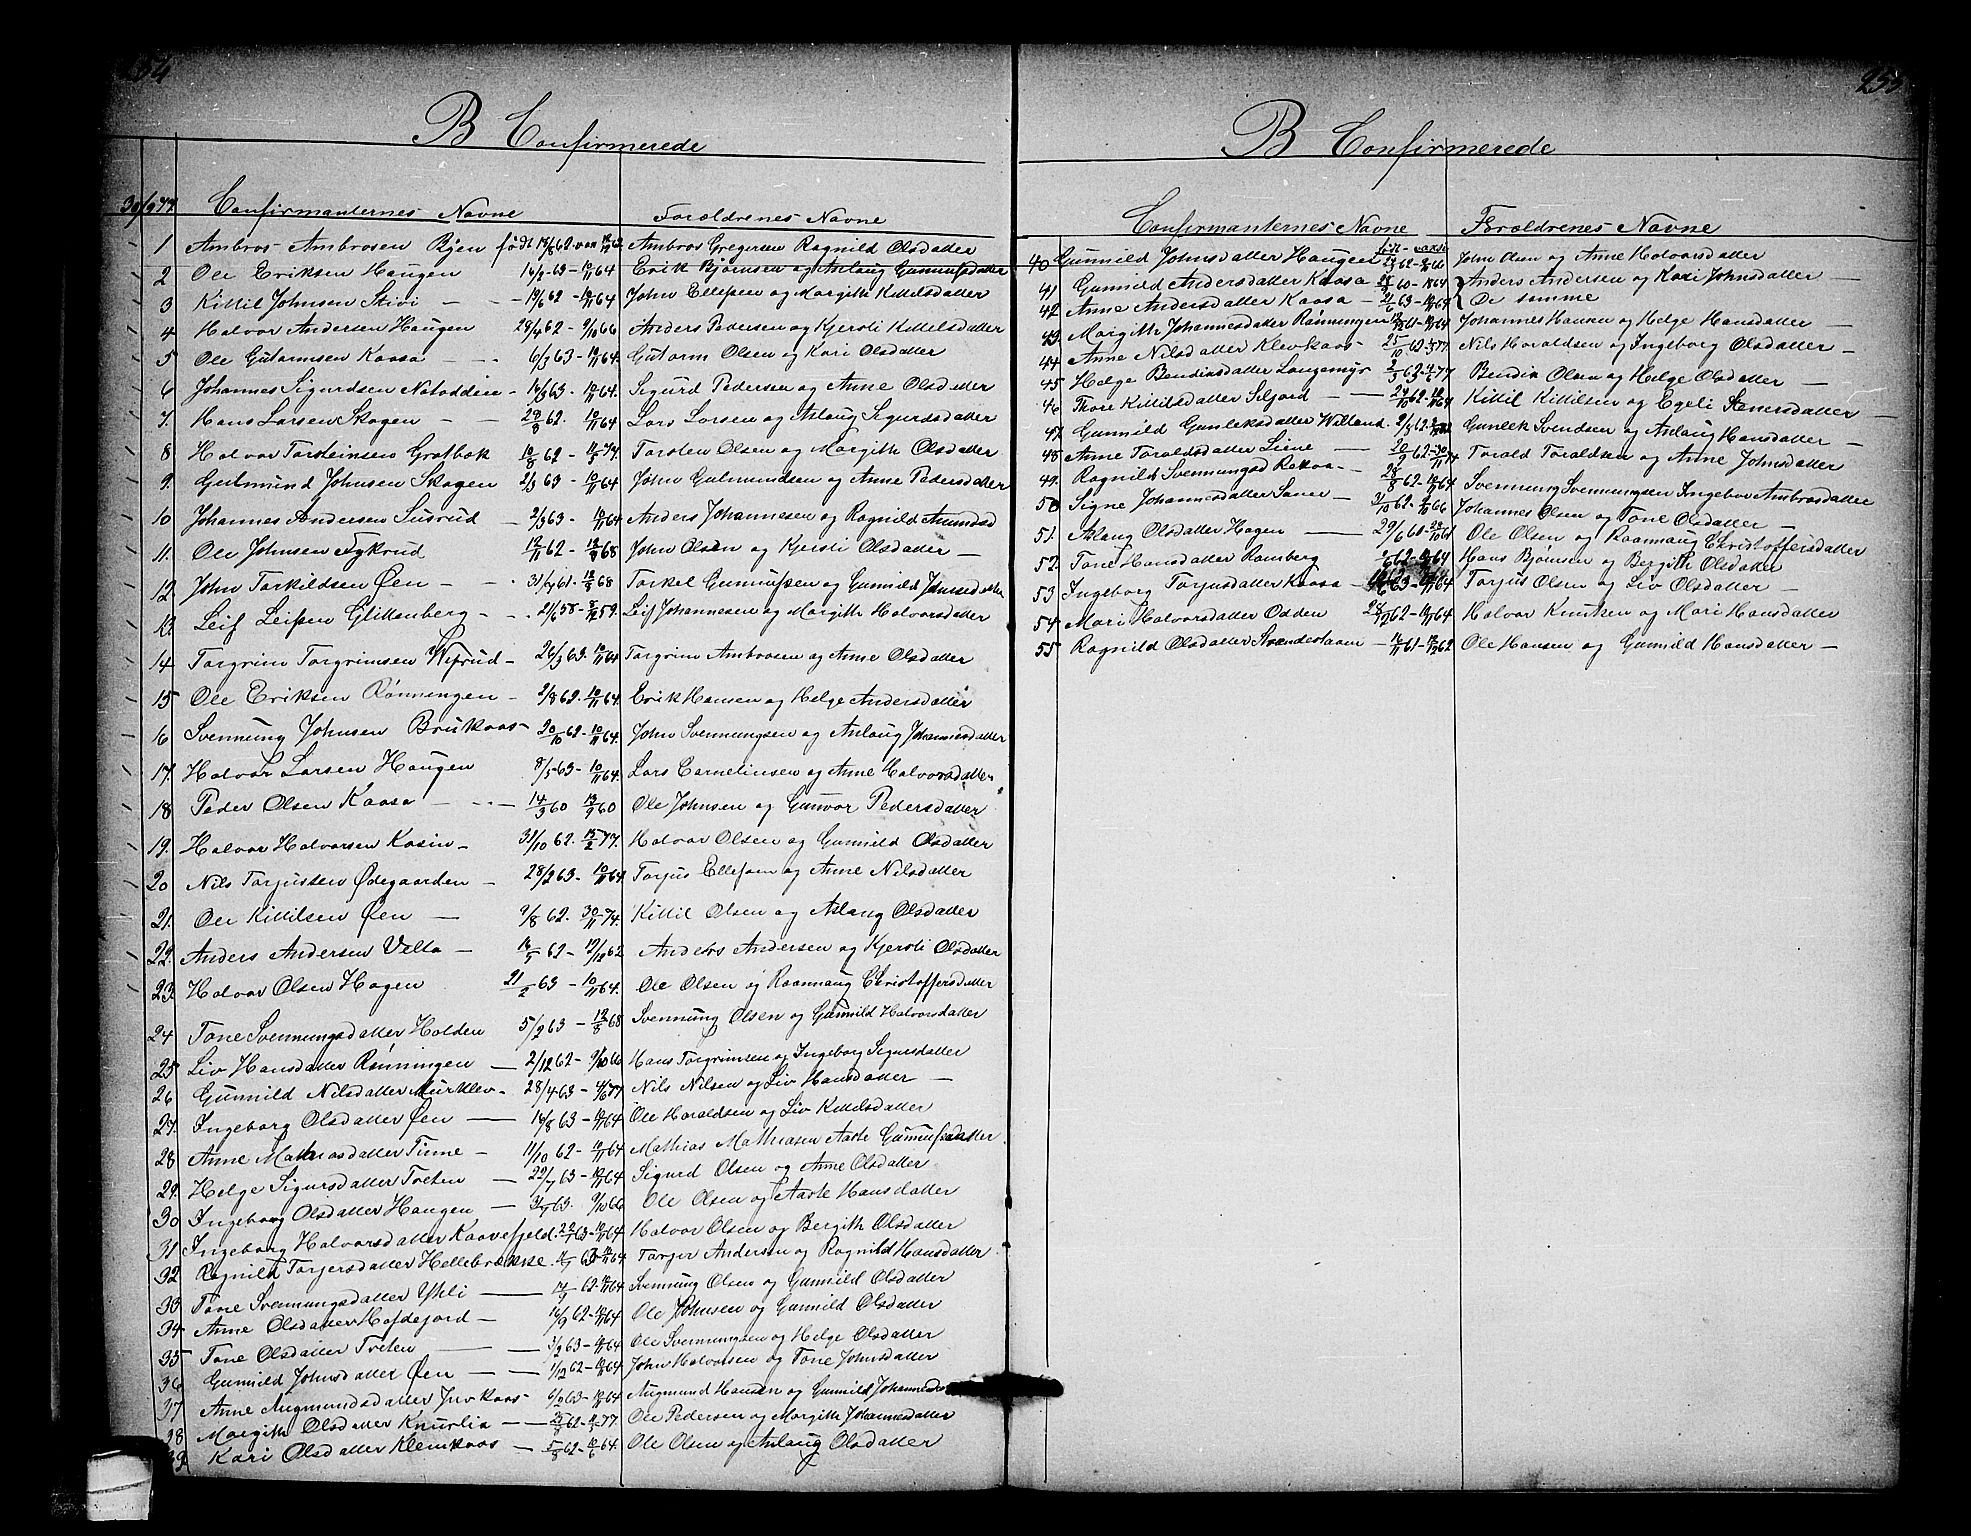 B Confirmerede
30/9 77. Confirmanternes Navne Forældrenes Navne
1 Ambros Ambrosen Bjen født 14/8 62. Ambros Gregersen Ragnild Olsdatter
2 Ole Eriksen Haugen 63 - 10/11 64 Erik Bjørnsen og Aslaug Gunnufsdatter
3 Kittil Johnsen Skoi - - 19/6 62 - 10/11 64 John Ellefsen og Margith Kittilsdatter
4 Halvor Andersen Haugen 28/4 62 - 9/10 66 Anders Pedersen og Kjersti Kittelsdatter
5 Ole Gutormsen Kaasa - - 6/3 63 - 10/11 64. Gutorm Olsen og Kari Olsdatter
6 Johannes Sigurdsen Notodden - 14/3 63. 10/11 64. Sigurd Pedersen og Anne Olsdatter
7. Hans Larsen Skogen - - 28/8 62. 10/11 64 Lars Larsen og Aslaug Sigurdsdatter
8 Halvor Torsteinsen Grotbæk 10/8 62 - 74. Torsten Olsen og Margith Olsdatter
9. Gulmund Johnsen Skogen 2/3 63 - 10/11 64 John Gulmundsen og Anne Pedersdatter
10 Johannes Andersen Susrud - 2/3 63 - 10/11 64 Anders Johannesen og Ragnild Amundsd
11. Ole Johnsen Tykrud 12/11 62 - 68 John Olsen og Kjersti Olsdatter -
12. John Torkildsen Øen - - 31/7 61. 68 Torkel Gunnufsen og Gunnild Johnsdatter
13. Leif Leifsen Glittenberg - - 2/6 58 - 59. Leif Johannesen og Margith Halvorsdatter
14 Torgrim Torgrimsen Wifrud - 26/3 63. 10/11 64 Torgrim Ambrosen og Anne Olsdatter
15 Ole Eriksen Rønningen - 2/8 62. 10/11 64. Erik Hansen og Helge Andersdatter
16 Svennung Johnsen Brukaas - 20/10 62 - 10/11 64. John Svennungsen og Aslaug Johannesdatter
17 Halvor Larsen Haugen 8/5 63 - 10/11 64. Lars Cornelinsen og Anne Halvorsdatter
18 Peder Olsen Kaasa - - - 14/3 60 13/9 60 Ole Johnsen og Gunvor Pedersdatter
19. Halvor Halvorsen Kasin - 31/10 62. 15/2 77. Halvor Olsen og Gunnild Olsdatter
20 Nils Torjussen Ødegaarden - 28/2 63 - 10/11 64 Torjus Ellefsen og Anne Nilsdatter
21. Ole Kittilsen Øen - 9/8 62. 30/11 74. Kittil Olsen og Aslaug Olsdatter
22. Anders Andersen Velta - 16/5 62 - 62 Anders Andersen og Kjersti Olsdatter
23. Halvor Olsen Hagen 21/2 63 - 10/11 64. Ole Olsen og Raannaug Christoffersdatter
24 Tone Svennungsdatter Holden 5/2 63 - 12/8 68 Svennung Olsen og Gunnild Halvorsdatter
25 Liv Hansdatter Rønningen - 2/12 62 - 9/10 66 Hans Torgrimsen og Ingeborg Sigursdatter
26 Gunnild Nilsdatter Murklev - 28/4 63 - 77 Nils Nilsen og Liv Hansdatter -
27. Ingeborg Olsdatter Øen - 63 - 10/11 64 Ole Haraldsen og Liv Kittelsdatter
28 Anne Mathiasdatter Tinne - 11/10 62 - 10/11 64 Mathias Mathiasen Aaste Gunnufsdatter
29. Helge Sigursdatter Treten - 22/7 63 - 10/11 64 Sigurd Olsen og Anne Olsdatter
30 Ingeborg Olsdatter Haugen - 63. 9/10 66 Ole Olsen og Aaste Hansdatter
31 Ingeborg Halvorsdatter Kaavefjeld. 63 - 10/11 64 Halvor Olsen og Bergith Olsdatter
32 Ragnild Torjersdatter Hellebrække. 63 - 10/11 64 Torjer Andersen og Ragnild Hansdatter
33 Tone Svennungsdatter Yhli - 62. 10/11 64 Svennung Olsen og Gunnild Olsdatter
34 Anne Olsdatter Hafdejord - 62 - 10/11 64 Ole Johnsen og Gunnild Olsdatter
35 Tone Olsdatter Treten - 3/2 63 - 10/11 64 Ole Svennungsen og Helge Olsdatter
36 Gunnild Johnsdatter Øen - - 1/12 62 - 10/11 64 John Halvorsen og Tone Johnsdatter
37 Anne Augmundsdatter Juvkaas - 63 - 10/11 64 Augmund Hansen og Gunnild Johannesd
38 Margith Olsdatter Knurlia - - 62 - 77 Ole Pedersen og Margith Johannesdatter
39 Kari Olsdatter Klemkaas - 5/8 62 - 64. Ole Olsen og Aslaug Olsdatter
255
B Confirmerede
Confirmanternes Navne Forældrenes Navne
40 Gunnild Johnsdatter Haugen 62 - 66 John Olsen og Anne Halvorsdatter
41 Gunnild Andersdatter Kaasa 60 - 64 Anders Andersen og Kari Johnsdatter -
42 Anne Andersdatter Kaasa - 63 - 10/11 64 De samme
43. Margith Johannesdatter Rønningen 61 - 64 Johannes Hansen og Helge Hansdatter -
44 Anne Nilsdatter Klevkaas - 25/10 62 - 77 Nils Haraldsen og Ingeborg Olsdatter -
45 Helge Bendiksdatter Langemyr 2/5 63 - 77 Bendik Olsen og Helge Olsdatter -
46 Thore Kittilsdatter Seljord - - 24/10 62. 64 Kittil Kittilsen og Egeli Stenersdatter -
47 Gunnild Gunleksdatter Willand. 62. Gunlek Svendsen og Aslaug Hansdatter -
48 Anne Toraldsdatter Liene - 20/9 62 - 30/11 74 Torald Toraldsen og Anne Johnsdatter
49. Ragnild Svennungsd Rekaa - 62 - 10/11 64 Svennung Svennungsen Ingebor Ambrosdatter
50 Signe Johannesdatter Saner - 31/10 62 - 66 Johannes Olsen og Tone Olsdatter -
51. Aslaug Olsdatter Hagen - 29/6 60 - 61 Ole Olsen og Raannaug Christoffersdatter
52. Tone Hansdatter Ramberg 62 - 64 Hans Bjønsen og Bergith Olsdatter
53 Ingeborg Torjusdatter Kaasa - 63 - 10/11 64 Torjus Olsen og Liv Olsdatter -
54 Mari Halvorsdatter Odden 28/12 62 - 10/11 64 Halvor Knutsen og Mari Hansdatter
55 Ragnild Olsdatter - 61 - 62 Ole Hansen og Gunnild Hansdatter -